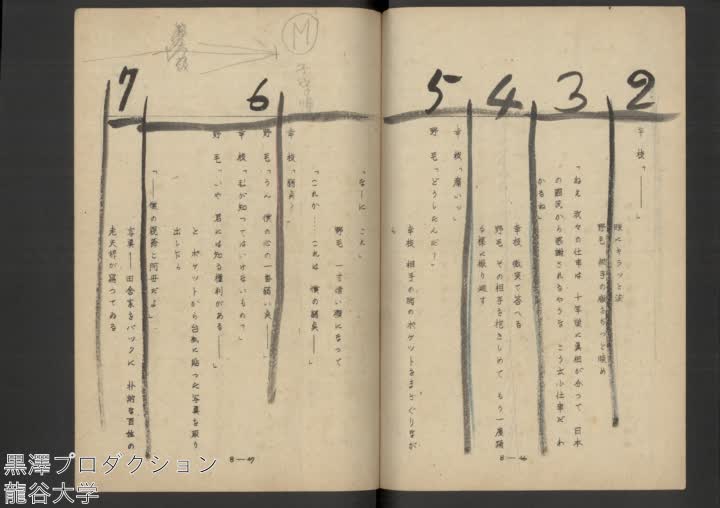 2
3
4
5
幸枝「————」
眼にキラッと涙
野毛 相手の顔をぢっと眺め
「ねえ 我々の仕事は 十年後に真相が分って 日本
の国民から感謝されるやうな こう云ふ仕事だ わ
かるね」
幸枝 微笑で答へる
野毛 その相手を抱きしめて もう一度踊
る様に振り廻す
幸枝「痛いッ」
野毛「どうしたんだ？」
幸枝 相手の胸のポケットをまさぐりなが
ら
8—46
M
6
7
「なーに これ」
野毛 一寸凄い顔になって
「これか……これは 僕の弱点——」
幸枝「弱点？」
野毛「うん 僕の心の一番弱い点——」
幸枝「私が知ってはいけないもの？」
野毛「いや 君には知る権利がある——」
と ポケットから台紙に貼った写真を取り
出しながら
「——僕の親爺と阿母だよ」
写真——田舎家をバックに 朴訥な百姓の
老夫婦が写つてゐる
8—47
黒澤プロダクション
龍谷大学